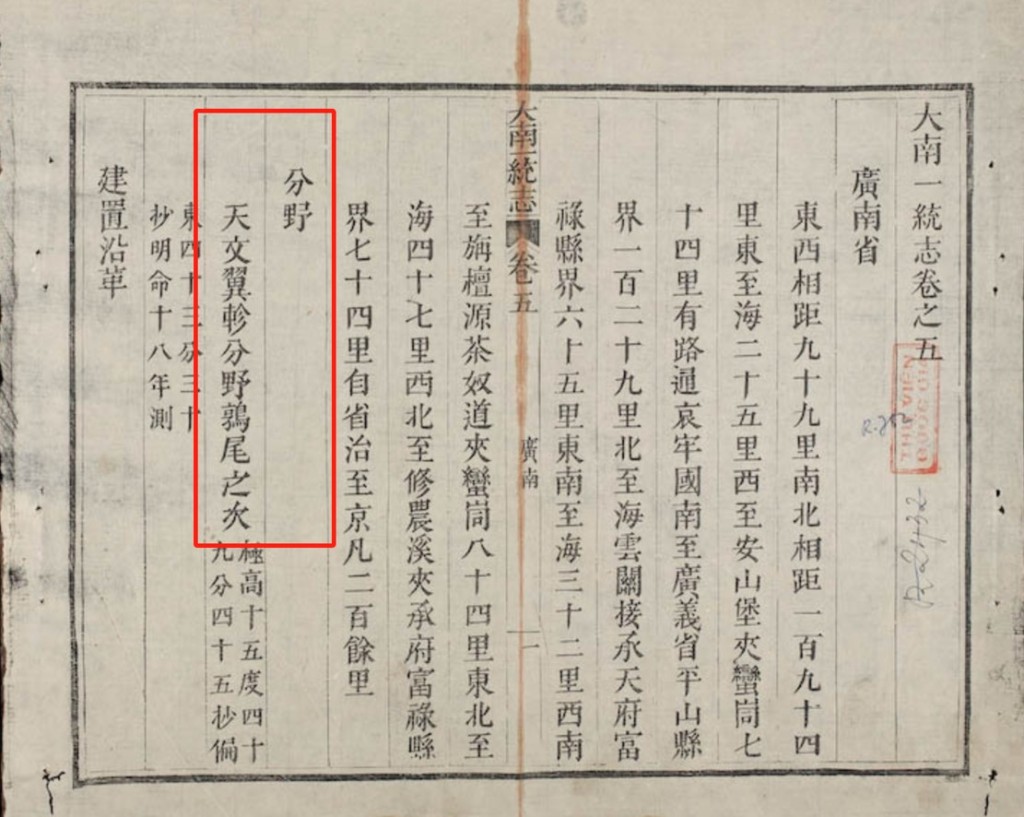 大南一統志卷之五
廣南省
東西相距九十九里南北相距一百九十四
里東至海二十五里西至安山堡夾蠻峝七
十四里有路通哀牢國南至廣義省平山縣
界一百二十九里北至海雲關接承天府富
祿縣界六十五里東南至海三十二里西南
大南一統志 卷五
廣南
一
至旃檀源茶奴道夾蠻峝八十四里東北至
海四十七里西北至修農溪夾承府富祿縣
界七十四里自省治至京凡二百餘里
分野
天文翼軫分野鶉尾之次
極高十五度四十
九分四十五抄偏
東四十三分三十
抄明命十八年測
建置沿革
THƯ VIỆN
QUỐC GIA